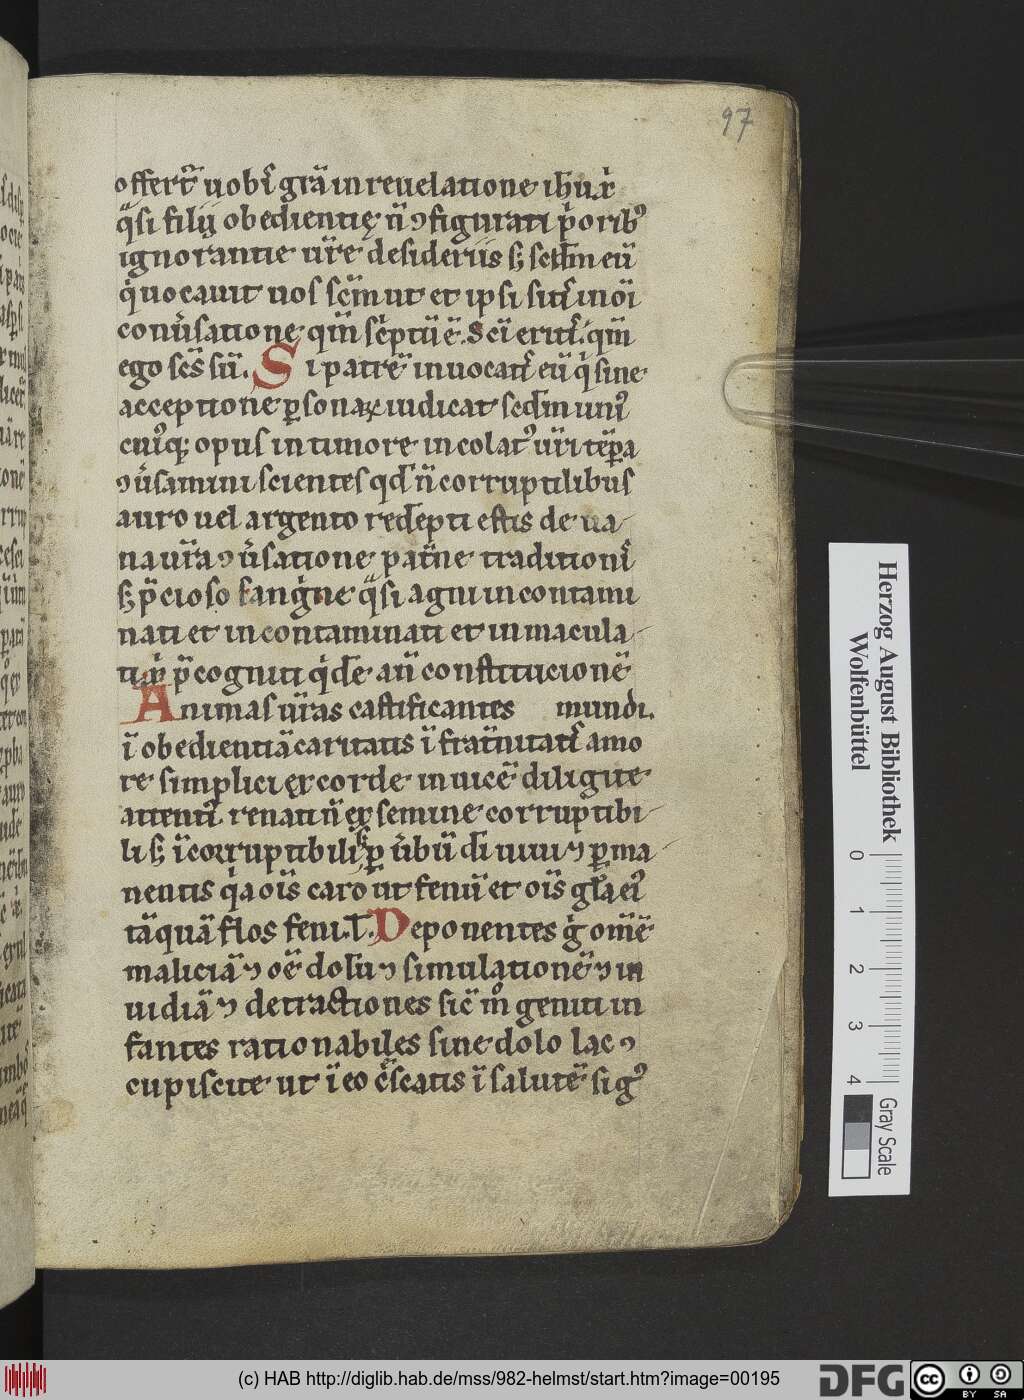 97
offert̄ uobᷤ grā in reuelatione ihu xp̄
qᷓsi filij obedientię n̄ ꝯfigurati pͥoribꝰ
ignorantie ur̄e desideriis s; scd̄m eū
qͥ uocauit uos sc̄m ut et ipsi sitᷤ in oī
conuͥsatione qm̄ scͥptū ē. Scī eritᷤ. qm̄
ego scs̄ sū. Si patrē inuocatᷤ eū qͥ sine
acceptione ꝑsonaꝝ iudicat scd̄m uniꝰ
cuiꝰq; opus in timore incolatꝰ ur̄i tēꝑa
ꝯuͥsamini scientes qd̄ n̄ corruptilibus
auro uel argento redēpti estis de ua-
na ur̄a ꝯuͥsatione pat̄ne traditionᷤ
s; p̄cioso sangͥne qᷓsi agni incontami
nati et incontaminati et inmacula-
ti xp̄i p̄cogniti qͥdē an̄ constitucionē
Animas ur̄as castificantes mundi.
ī obedientiā caritatis ī frat̄nitatᷤ amo
re simplici ex corde inuicē diligite
attentꝰ renati n̄ ex semine corruptibi-
li s; īcorruptibili ꝑ uͥbū dī uiui ꝯ ꝑma-
nentis qͥa oīs caro ut fenū et oīs glā eiꝰ
tāquā flos feni. T. Deponentes gͥ omē
maliciā ꝯ oē dolū ꝯ simulationē ꝯ in
uidiā ꝯ detractiones sic̄ mͦ geniti in
fantes rationabiles sine dolo lac ꝯ
cupiscite ut ī eo cͥscatis ī salutē si gꝰ
Herzog August Bibliothek
Wolfenbüttel
0 1 2 3 4
Gray Scale
(c) HAB http://diglib.hab.de/mss/982-helmst/start.htm?image=00195
DFG
cc BY SA